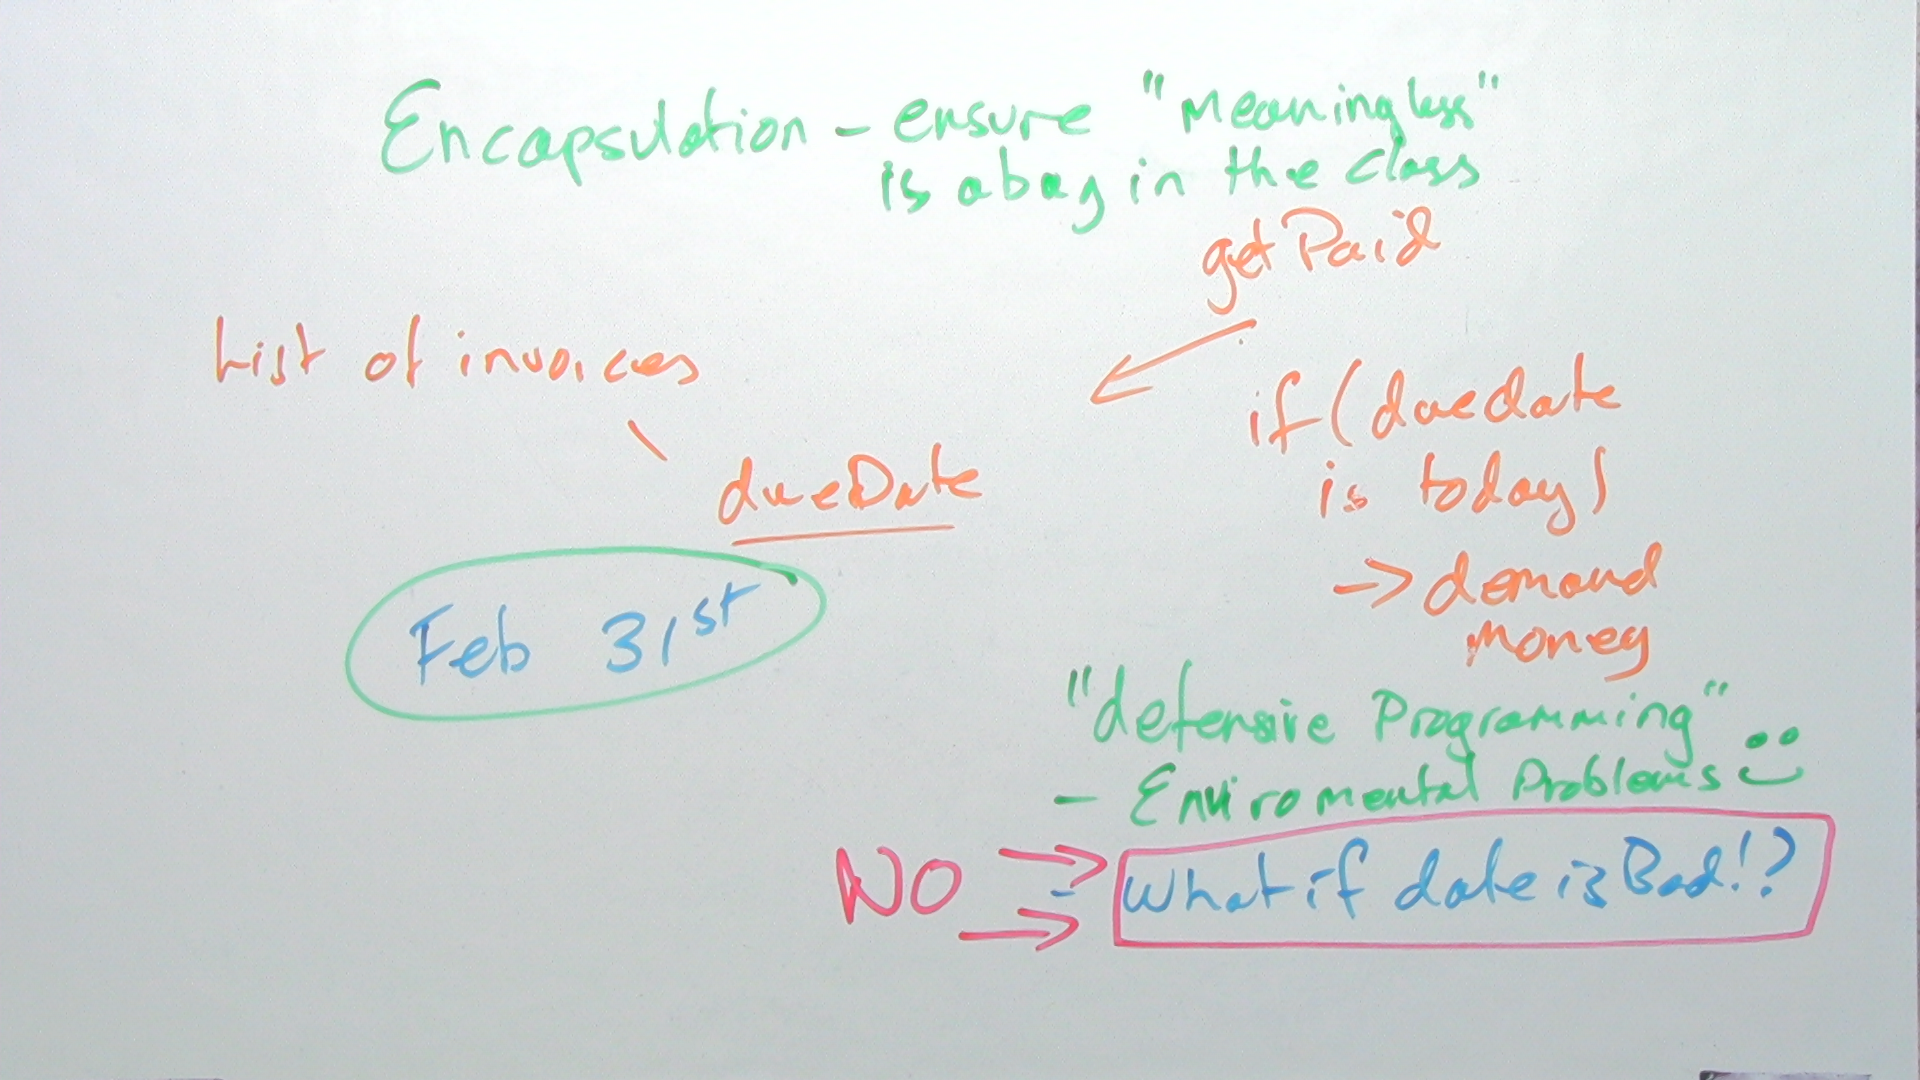 Encapsulation - ensure "Meaningless"
is a bug in the class
getPaid
List of invoices
if (duedate
is today)
dueDate
-> demand
money
Feb 31st
"defensive Programming"
- Enviromental Problems :)
NO
- What if date is Bad!?